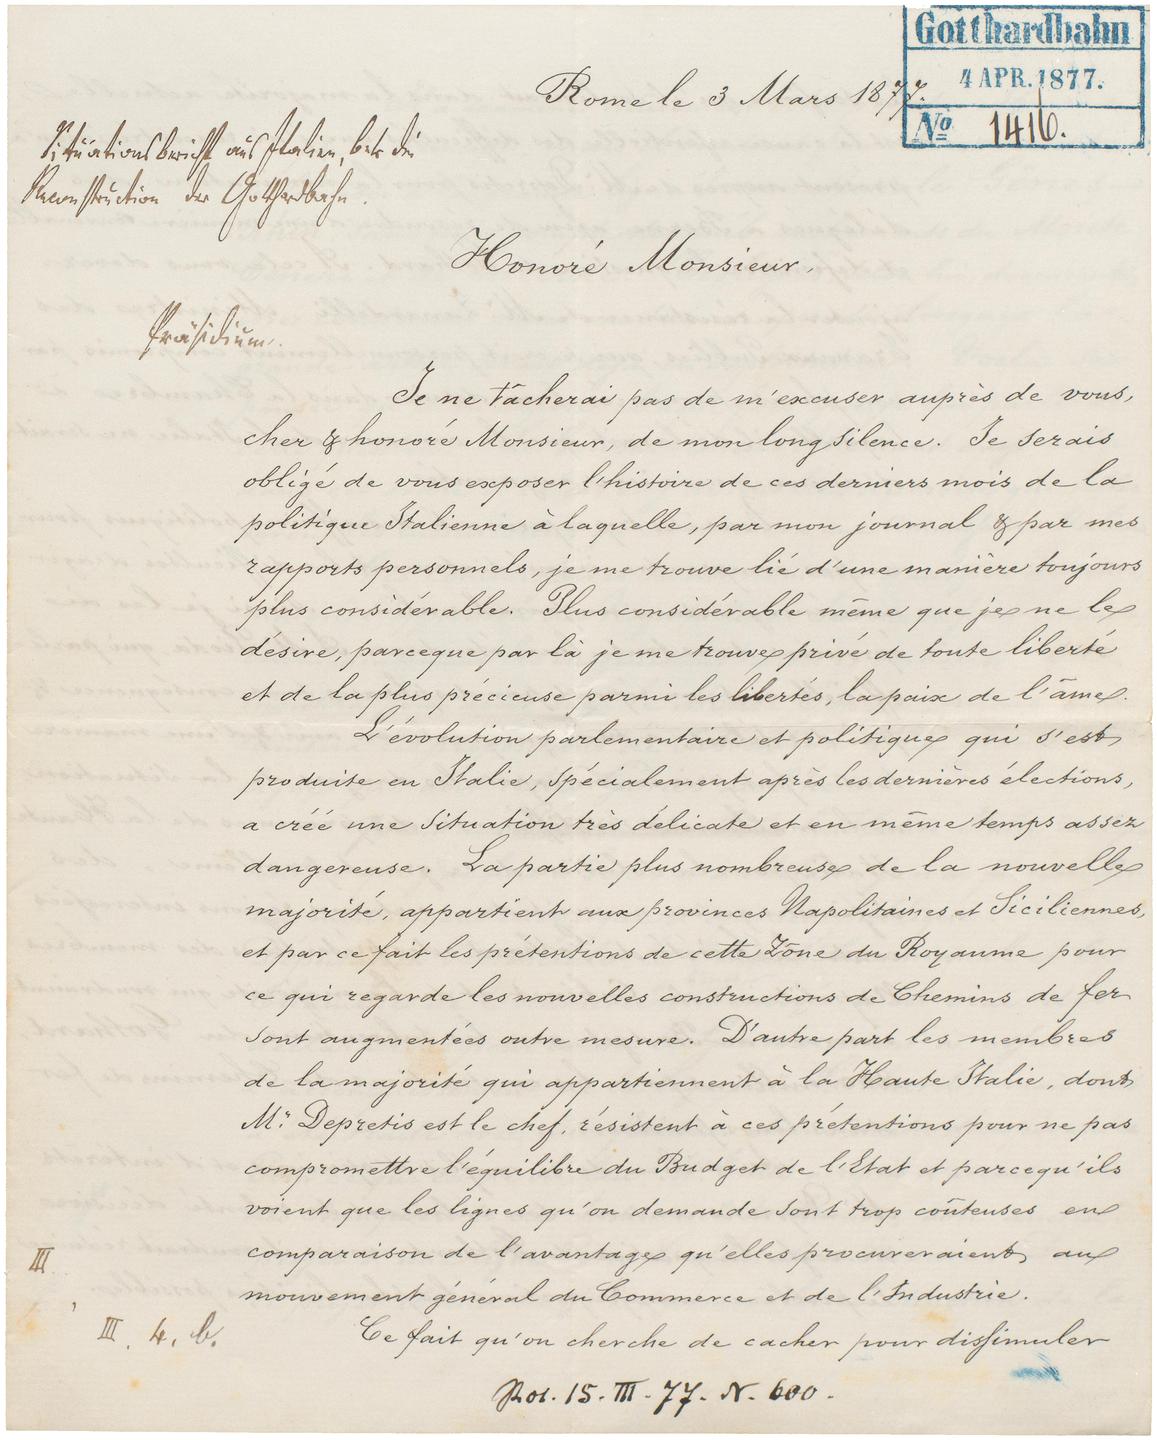 Gotthardbahn
4 APR. 1877.
No 1416.
Rome le 3 Mars 1877.
Situationsbericht aus Italien, betr. die
Reconstruction der Gotthardbahn.
Honoré Monsieur,
Präsidium.
Je ne tâcherai pas de m'excuser auprès de vous,
cher & honoré Monsieur, de mon long silence. Je serais
obligé de vous exposer l'histoire de ces derniers mois de la
politique Italienne à laquelle, par mon journal & par mes
rapports personnels, je me trouve lié d'une manière toujours
plus considérable. Plus considérable même que je ne le
désire, parceque par là je me trouve privé de toute liberté
et de la plus précieuse parmi les libertés, la paix de l'âme.
L'évolution parlementaire et politique qui s'est
produite en Italie, spécialement après les dernières élections,
a créé une situation très délicate et en même temps assez
dangereuse. La partie plus nombreuse de la nouvelle
majorité, appartient aux provinces Napolitaines et Siciliennes,
et par ce fait les prétentions de cette Zône du Royaume pour
ce qui regarde les nouvelles constructions de Chemins de fer
sont augmentées outre mesure. D'autre part les membres
de la majorité qui appartiennent à la Haute Italie, dont
Mr. Depretis est le chef, résistent à ces prétentions pour ne pas
compromettre l'équilibre du Budget de l'Etat et parcequ'ils
voient que les lignes qu'on demande sont trop coûteuses en
comparaison de l'avantage qu'elles procureraient au
mouvement général du Commerce et de l'Industrie.
Ce fait qu'on cherche de cacher pour dissimuler
III
III. 4. b.
15. III. 77. N. 600.